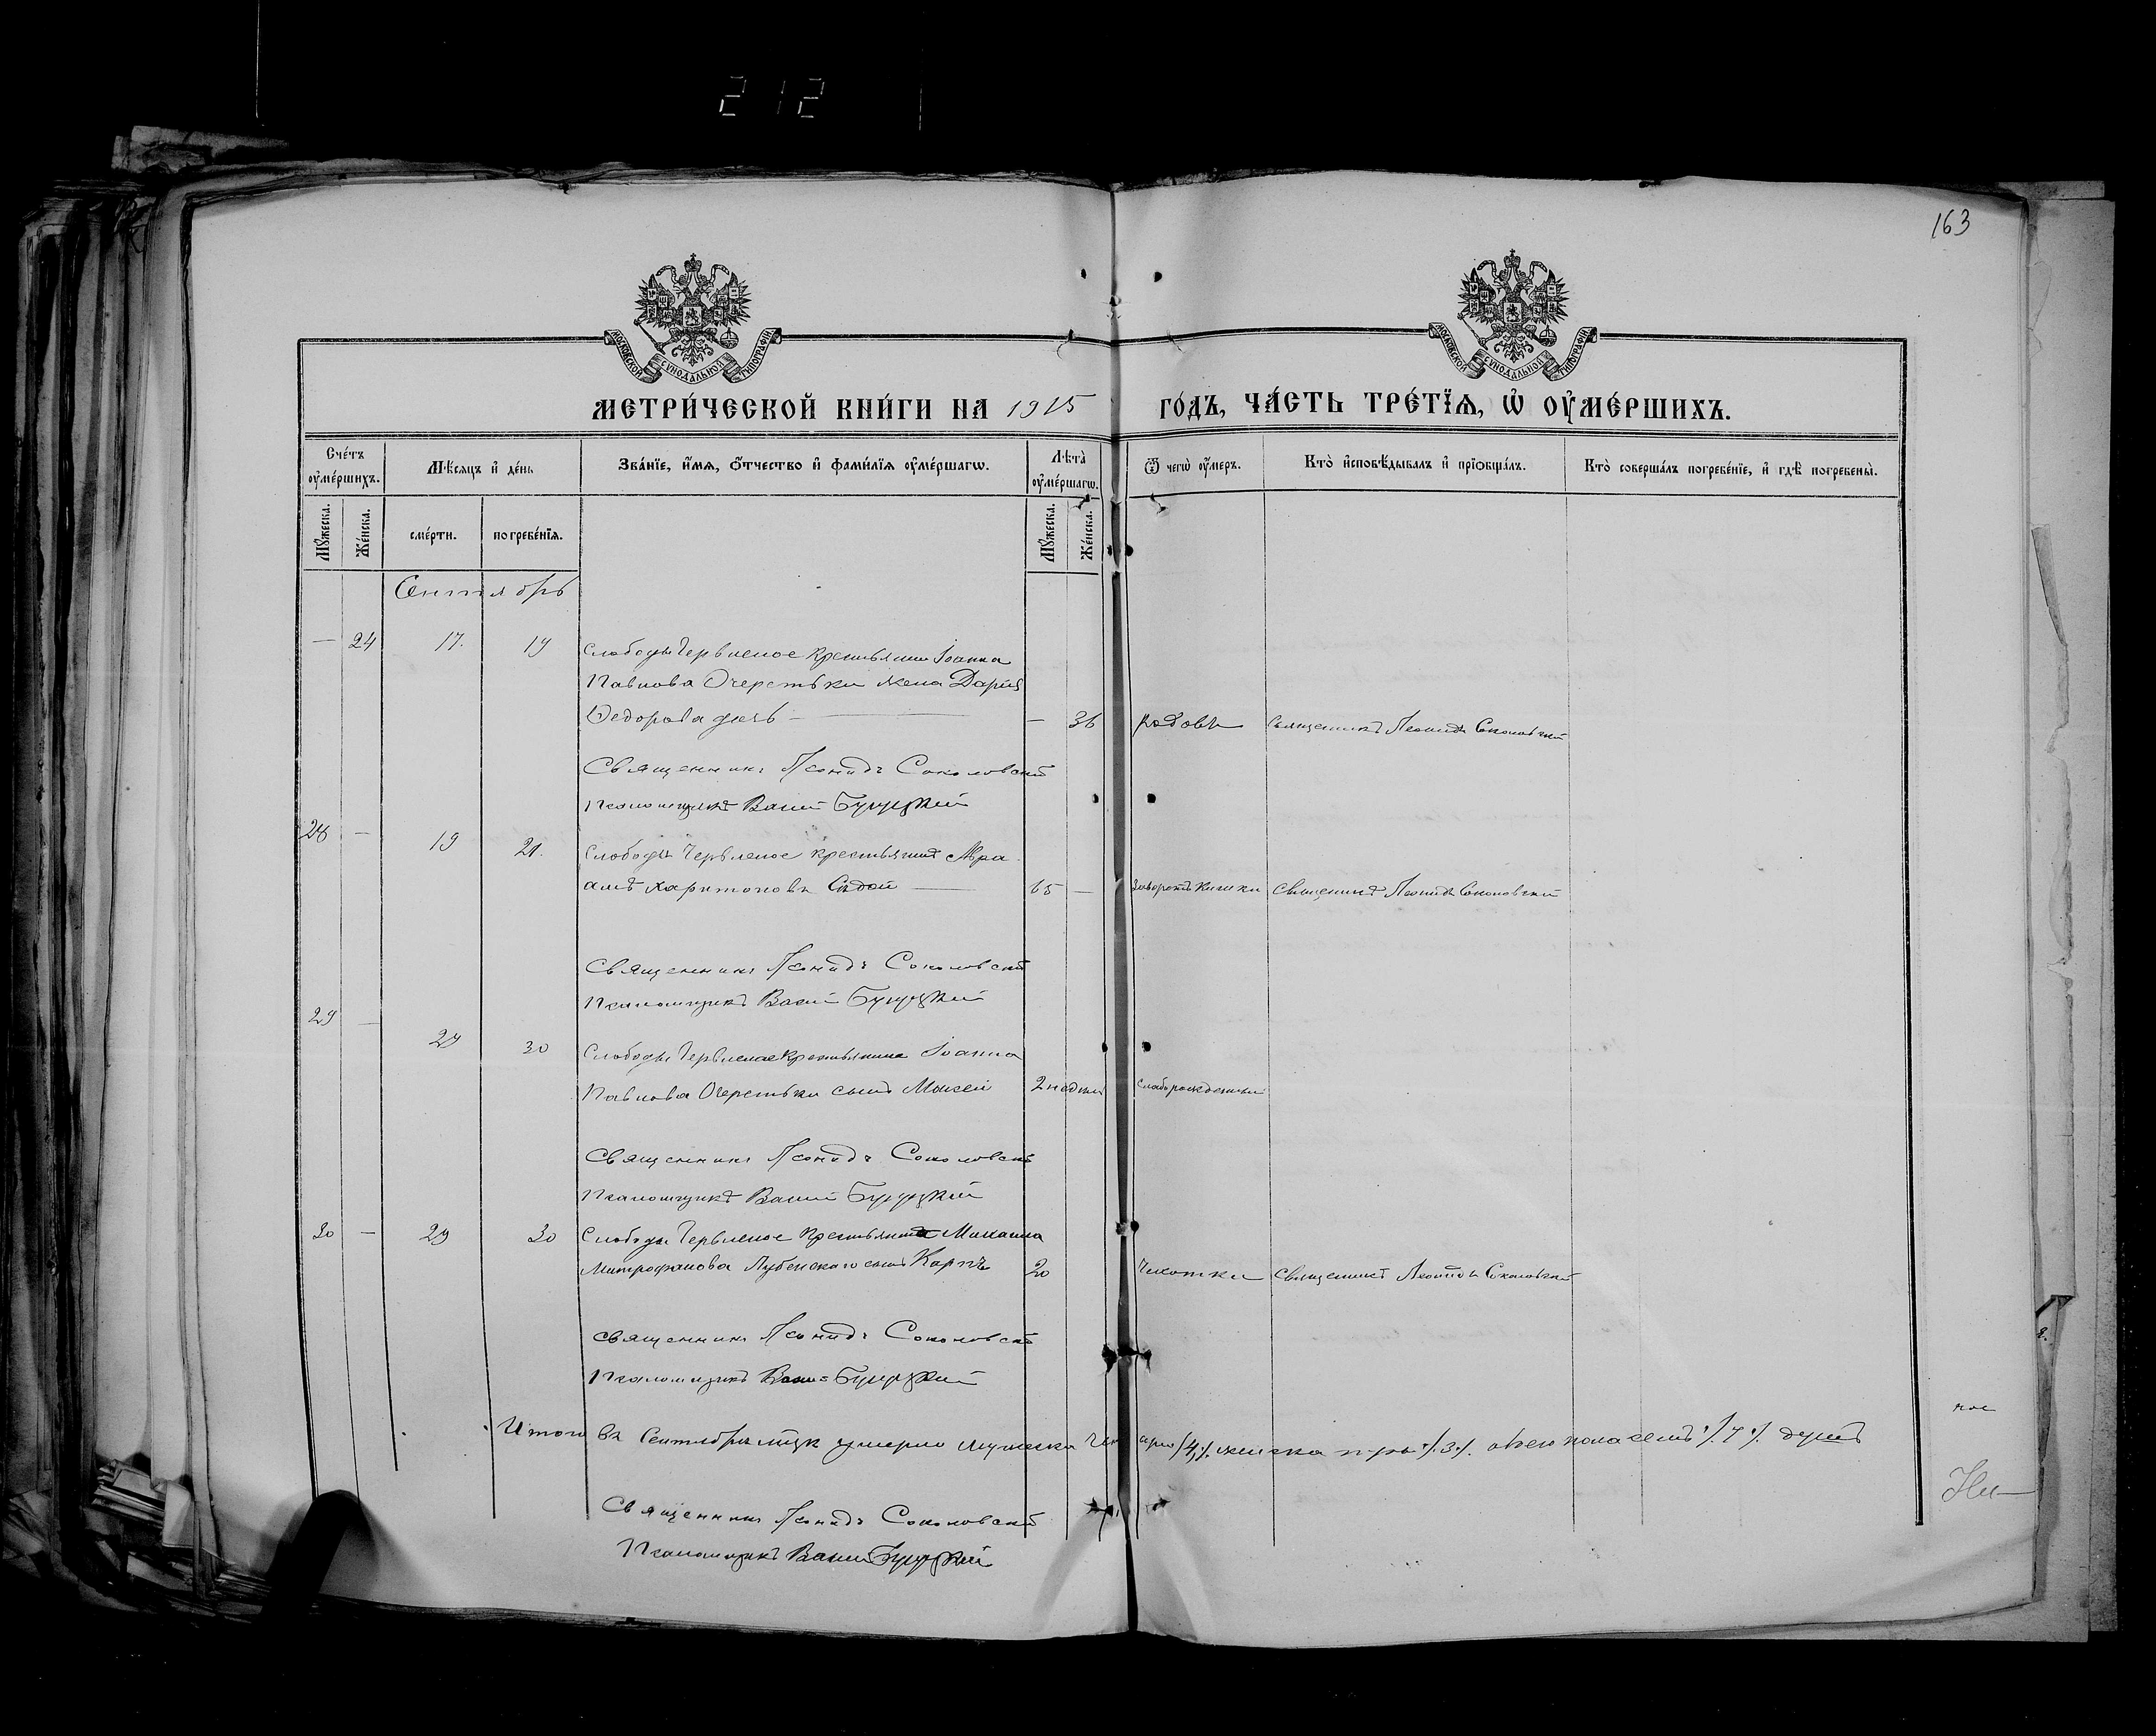 212
163
МОСКОВСКОЙ СѴНОДАЛЬНОЙ ТИПОГРАФІИ
МОСКОВСКОЙ СѴНОДАЛЬНОЙ ТИПОГРАФІИ
МЕТРИ́ЧЕСКОЙ КНИ́ГИ НА 1915 ГО́ДЪ, ЧА́СТЬ ТРЕ́ТЇѦ, Ѡ҆ ОУ҆МЕ́РШИХЪ.
Сче́тъ оу҆ме́ршихъ.
Мѣ́сяцъ и҆ де́нь
Зва́нїе, и҆́мѧ, ѻ҆́тчество и҆ фами́лїѧ оу҆ме́ршагѡ.
Лѣ́та̀ оу҆ме́ршагѡ.
Ѿ чегѡ̀ оу҆́меръ.
Кто̀ и҆сповѣ́дывалъ и҆ прїѻбща́лъ.
Кто̀ соверша́лъ погребе́нїе, и҆ гдѣ̀ погребены̀.
Мꙋ́жеска. Же́нска. сме́рти. погребе́нїѧ. Мꙋ́жеска. Же́нска.
Сентябрь
— 24 17. 19 Слободы Червленое крестьянина Іоанна
Павлова Очеретьки жена Дарія
Ѳедорова дочь — — 36 родовъ Священникъ Леонидъ Соколовскій
Священникъ Леонидъ Соколовскій
Псаломщикъ Васил
28 — 19 21. Слободы Червленое крестьянинъ Авра
амъ Харитоновъ Сѣдой — 65 — Заворотъ кишки Священникъ Леонидъ Соколовскій
Священникъ Леонидъ Соколовскій
Псаломщикъ Васил
29 — 29 30 Слободы Червленое крестьянина Іоанна
Павлова Очеретьки сынъ Моисей 2 недѣли слаборожденный
Священникъ Леонидъ Соколовскій
Псаломщикъ Васил
30 — 29 30 Слободы Червленое крестьянина Михаила
Митрофанова Лубенскаго сынъ Карпъ 20 Чахотки Священникъ Леонидъ Соколовскій
Священникъ Леонидъ Соколовскій
Псаломщикъ
Итого въ Сентябрѣ м-цѣ умерло мужеска четыре /4/. женска три /.3./. обоего пола семь /.7./. душъ
Священникъ Леонидъ Соколовскій
Псаломщикъ Васил